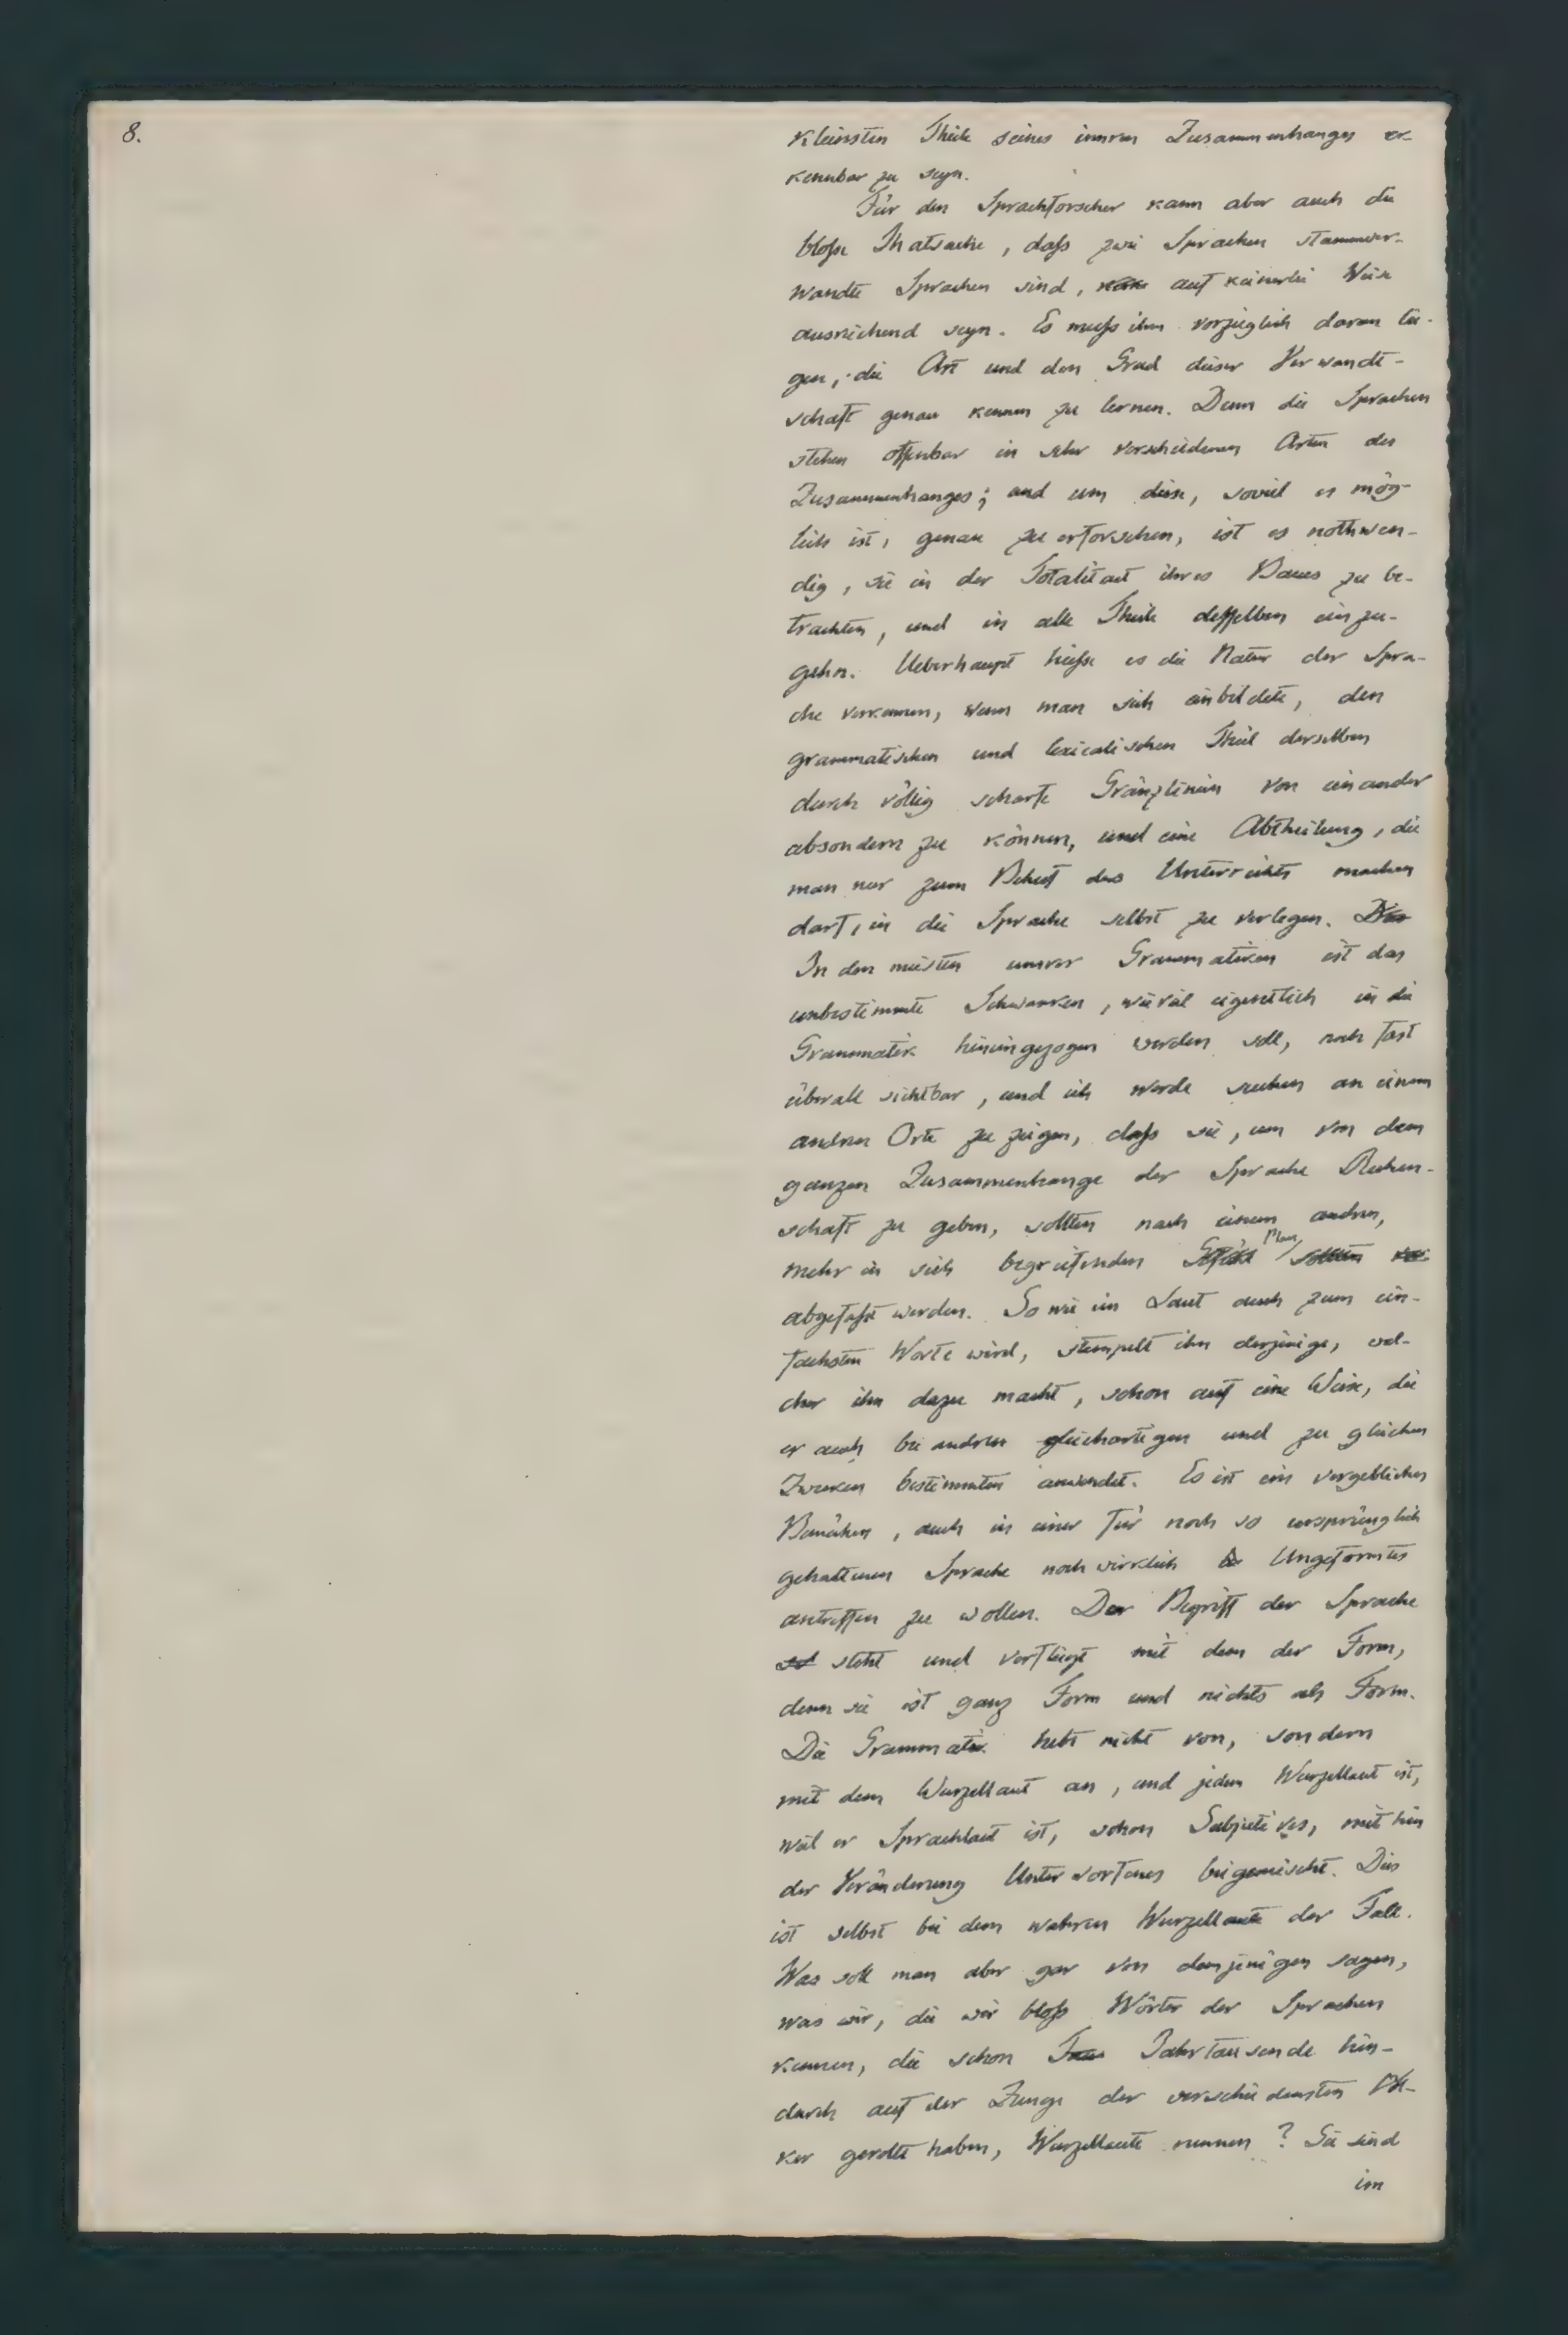 8.
kleinsten Theile seines inneren Zusammenhanges er-
kennbar zu seyn.
Für den Sprachforscher kann aber auch die
bloße Thatsache, daß zwei Sprachen stammver-
wandte Sprachen sind, auf keinerlei Weise
ausreichend seyn. Es muß ihm vorzüglich daran lie-
gen, die Art und den Grad dieser Verwandt-
schaft genau kennen zu lernen. Denn die Sprachen
stehen offenbar in sehr verschiedenen Arten des
Zusammenhanges; und um diese, soviel es mög-
lich ist, genau zu erforschen, ist es nothwen-
dig, sie in der Totalitaet ihres Baues zu be-
trachten, und in alle Theile desselben einzu-
gehn. Ueberhaupt hieße es die Natur der Spra-
che verkennen, wenn man sich einbildete, den
grammatischen und lexicalischen Theil derselben
durch völlig scharfe Gränzlinien von einander
absondern zu können, und eine Abtheilung, die
man nur zum Behuf des Unterrichts machen
darf, in die Sprache selbst zu verlegen. Die
In den meisten unsrer Grammatiken ist das
unbestimmte Schwanken, wieviel eigentlich in die
Grammatik hineingezogen werden soll, noch fast
überall sichtbar, und ich werde suchen an einem
andren Orte zu zeigen, daß sie, um von dem
ganzen Zusammenhange der Sprache Rechen-
schaft zu geben, sollten nach einem andren,
mehr in sich begreifenden Plan sollten
abgefaßt werden. So wie ein Laut auch zum ein-
fachsten Worte wird, stempelt ihn derjenige, wel-
cher ihn dazu macht, schon auf eine Weise, die
er auch bei andren gleichartigen und zu gleichen
Zwecken bestimmten anwendet. Es ist ein vergebliches
Bemühen, auch in einer für noch so ursprünglich
gehaltenen Sprache noch wirklich Ungeformtes
antreffen zu wollen. Der Begriff der Sprache
steht und verfliegt mit dem der Form,
denn sie ist ganz Form und nichts als Form.
Die Grammatik hebt nicht von, sondern
mit dem Wurzellaut an, und jedem Wurzellaut ist,
weil er Sprachlaut ist, schon Subjectives, mithin
der Veränderung Unterworfenes beigemischt. Dies
ist selbst bei dem wahren Wurzellaute der Fall.
Was soll man aber gar von demjenigen sagen,
was wir, die wir bloß Wörter der Sprachen
kennen, die schon Jahrtausende hin-
durch auf der Zunge der verschiedensten Völ-
ker gerollt haben, Wurzellaute nennen? Sie sind
im